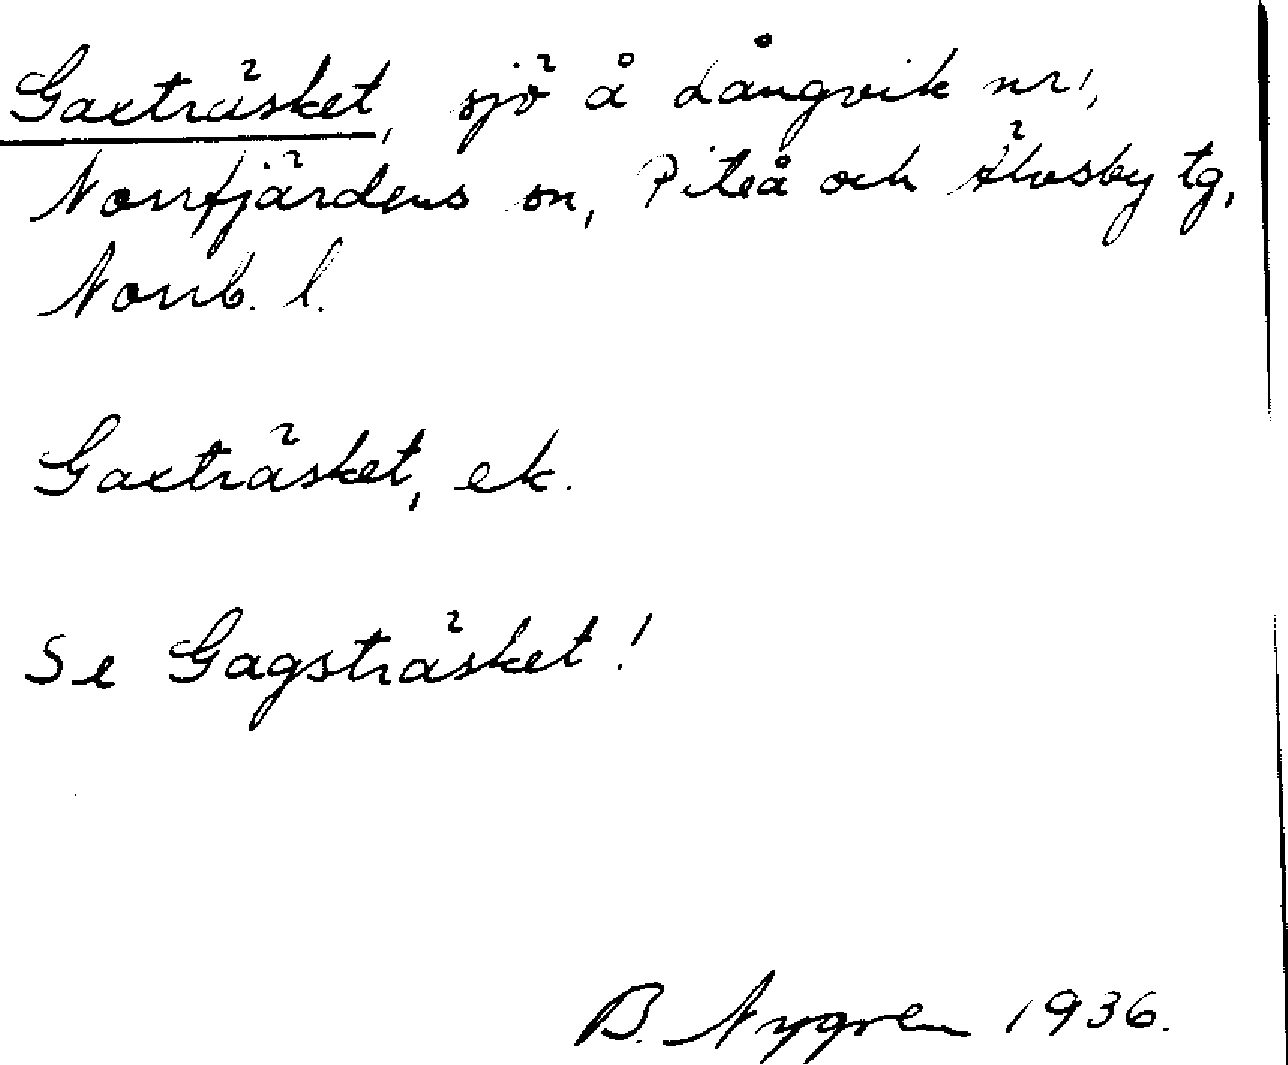 Gaxträsket, sjö å Långvik nr 1,
Norrfjärdens sn, Piteå och Älvsby tg,
Norrb. l.
Gaxträsket, ek.
Se Gagsträsket!
B. Nygren 1936.